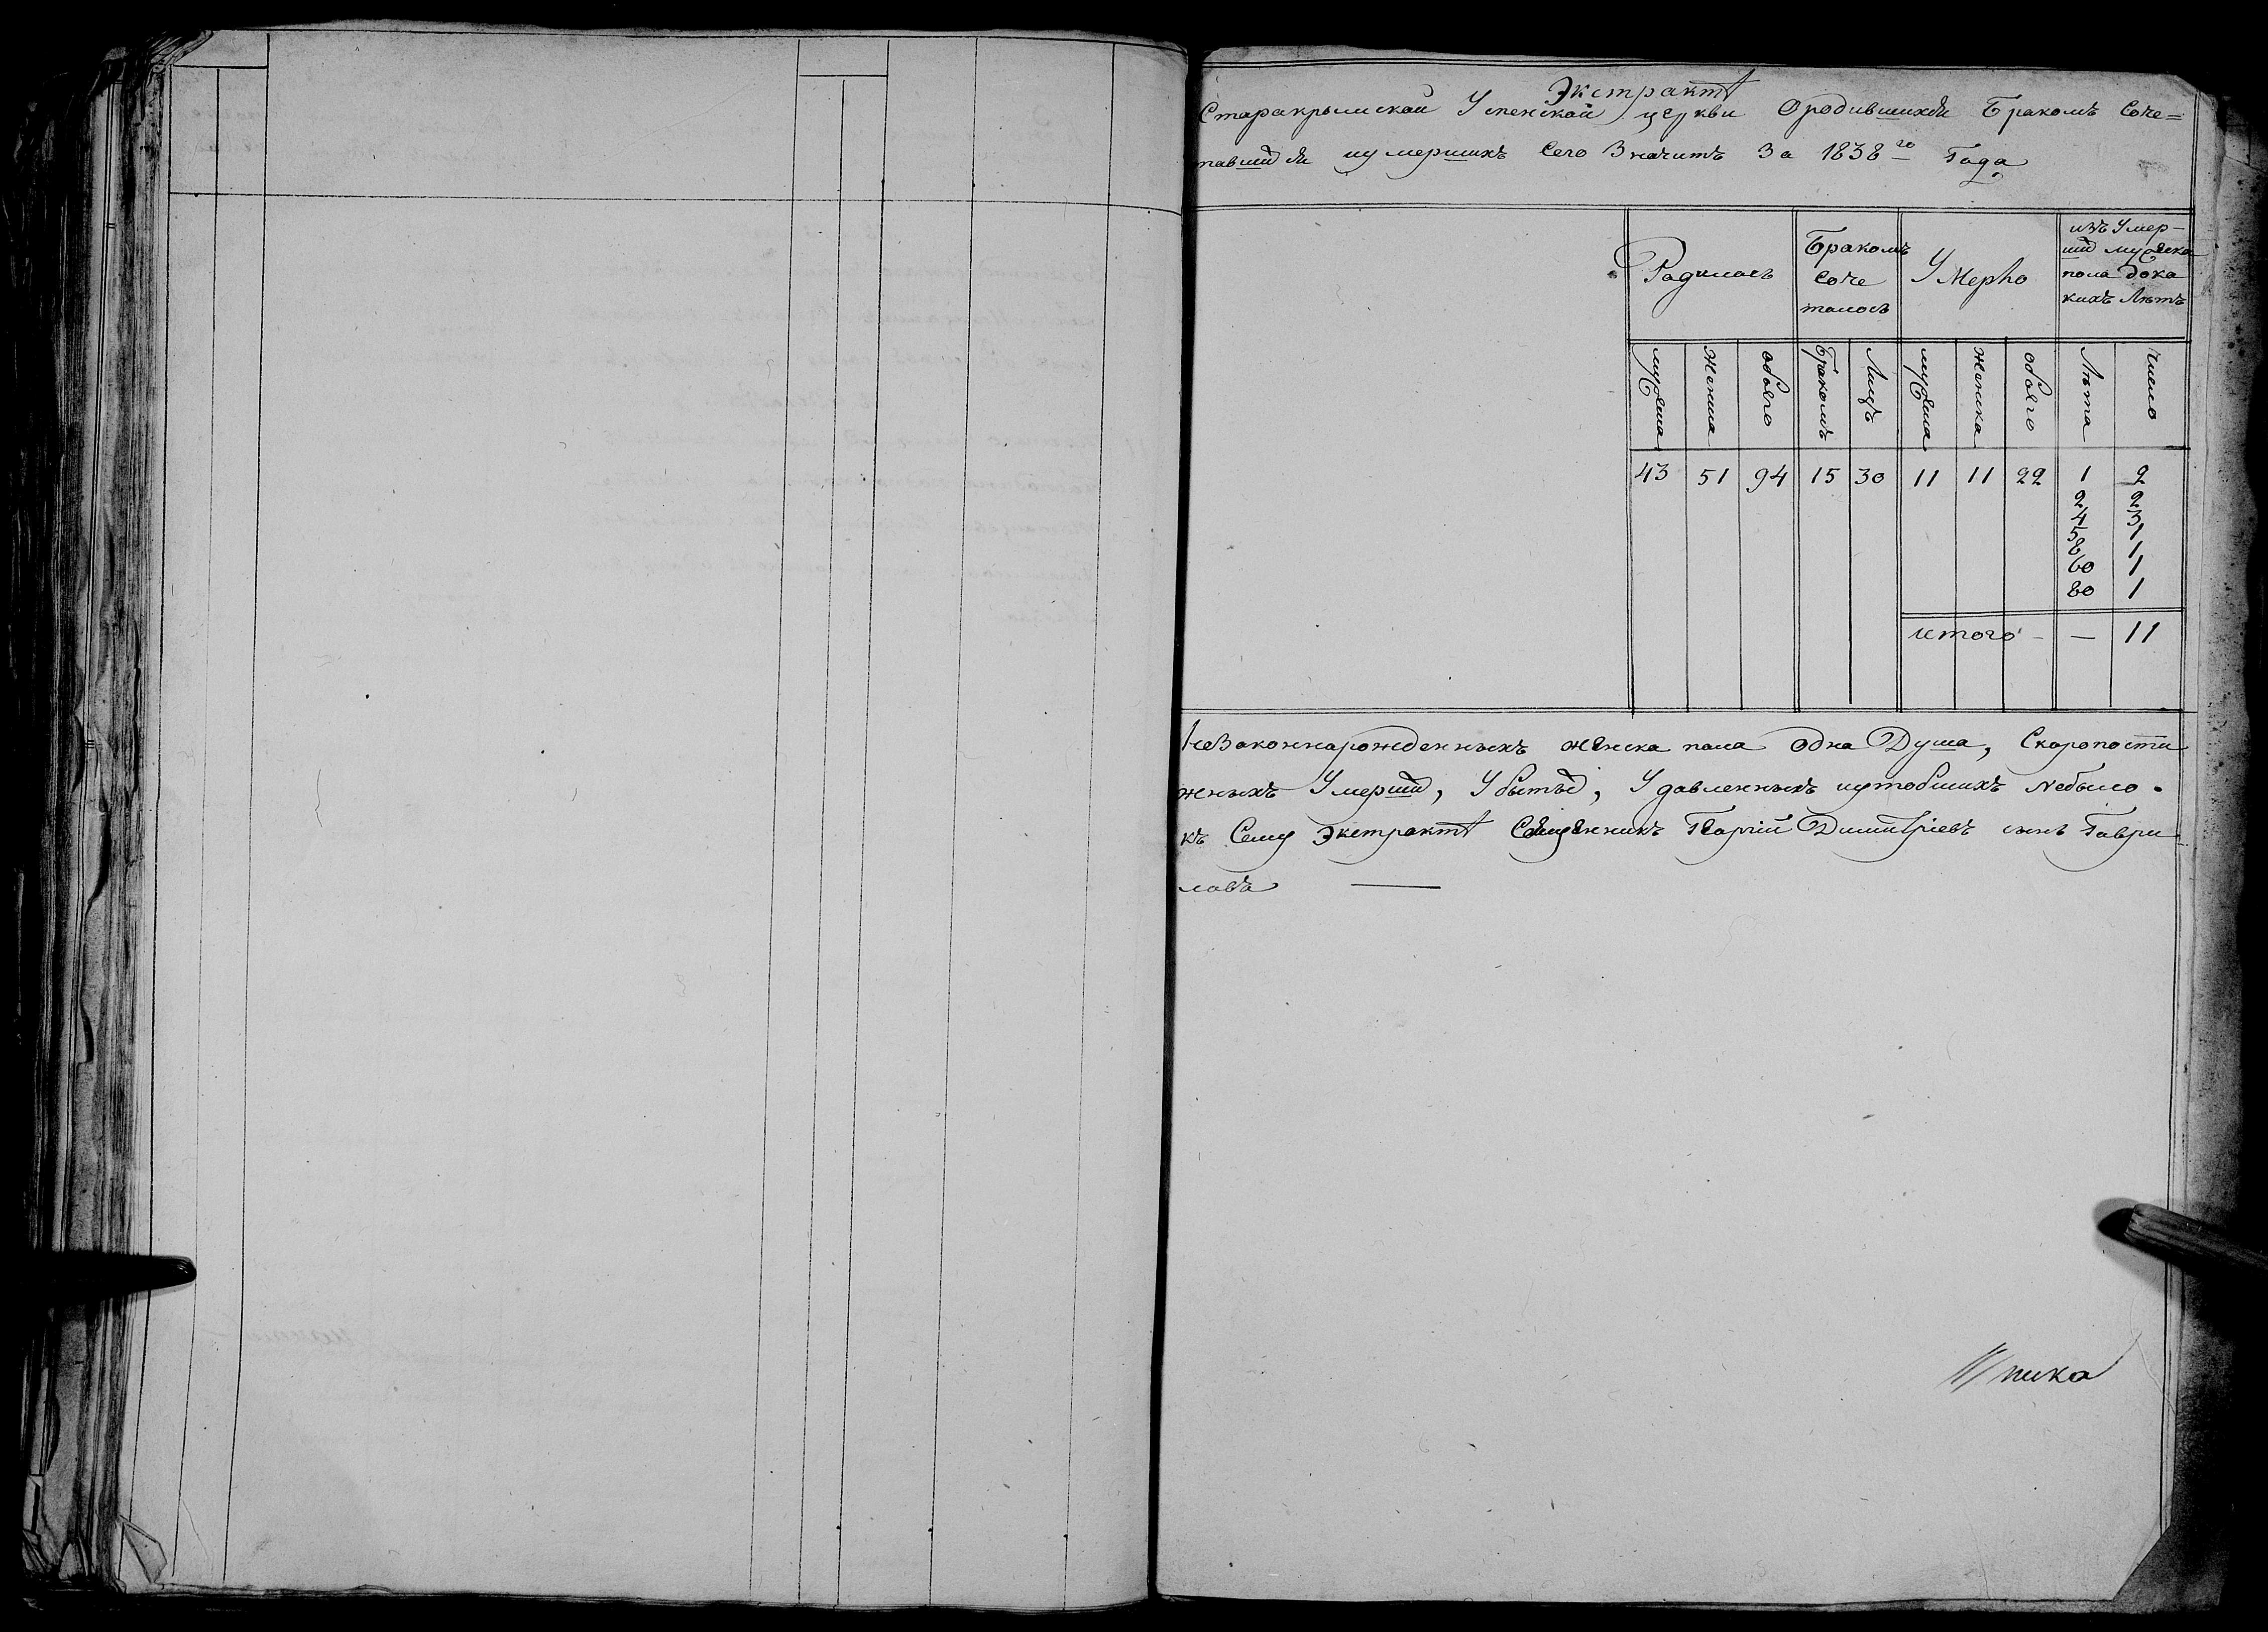 Экстрактъ
Старакрымской Успенской церкви Ородившихся Бракомъ Соче=
тавшихся иумершихъ Сего Значитъ За 1838го Года
Радилось | Бракомъ Соче талось | УМерло | изъ Умер- ших мужеска пола дока кихъ Лѣтъ
мужеска | женска | обоего | Бракомъ | Лицъ | мужеска | женска | обоего | Лѣта | число
43 | 51 | 94 | 15 | 30 | 11 | 11 | 22 | 1 | 2
2 | 2
4 | 3
5 | 1
8 | 1
60 | 1
80 | 1
итого - | — | 11
Незаконнарожденныхъ женска пала одна Душа, Скоропости
жныхъ Умерших, Убытых, Удавленныхъ иутобшихъ Небыло.
къ Сему Экстрактъ Священникъ Георгій Димитріевъ сынъ Гаври
лавъ —